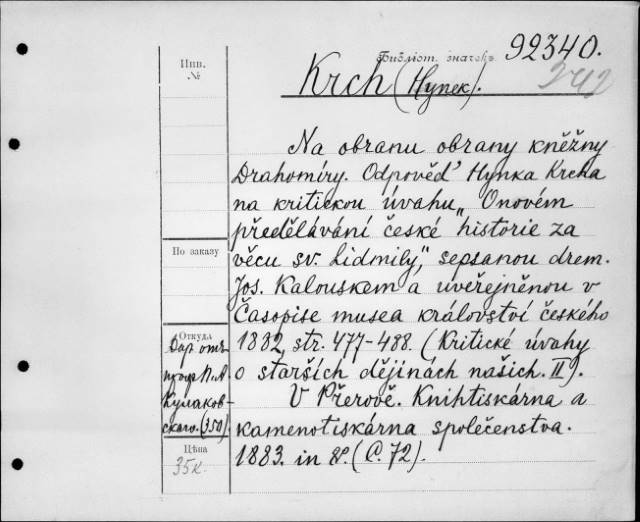 Библіот. значекъ 92340.
242
Инв.
№
Krch (Hynek).
Na obranu obrany kněžny
Drahomíry. Odpověď Hynka Krcha
na kritickou úvahu „O novém
předělávání české historie za
věcu sv. Lidmily", sepsanou drem.
Jos. Kalouskem a uveřejněnou v
Časopise musea království českého
1882, str. 477-488. (Kritické úvahy
o starších dějinách našich. II).
V Přerově. Knihtiskárna a
kamenotiskárna společenstva.
1883. in 8°. (C. 72).
По заказу
Откуда
Даръ отъ
проф. П. А.
Кулаков-
скаго. (350)
Цѣна
35 к.